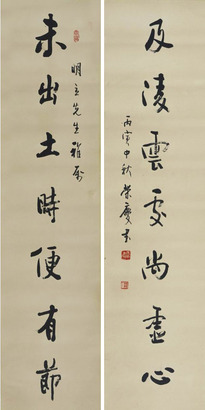 及淩雲處尚虛心
丙寅中秋榮慶書
明立先生雅屬
未出土時便有節